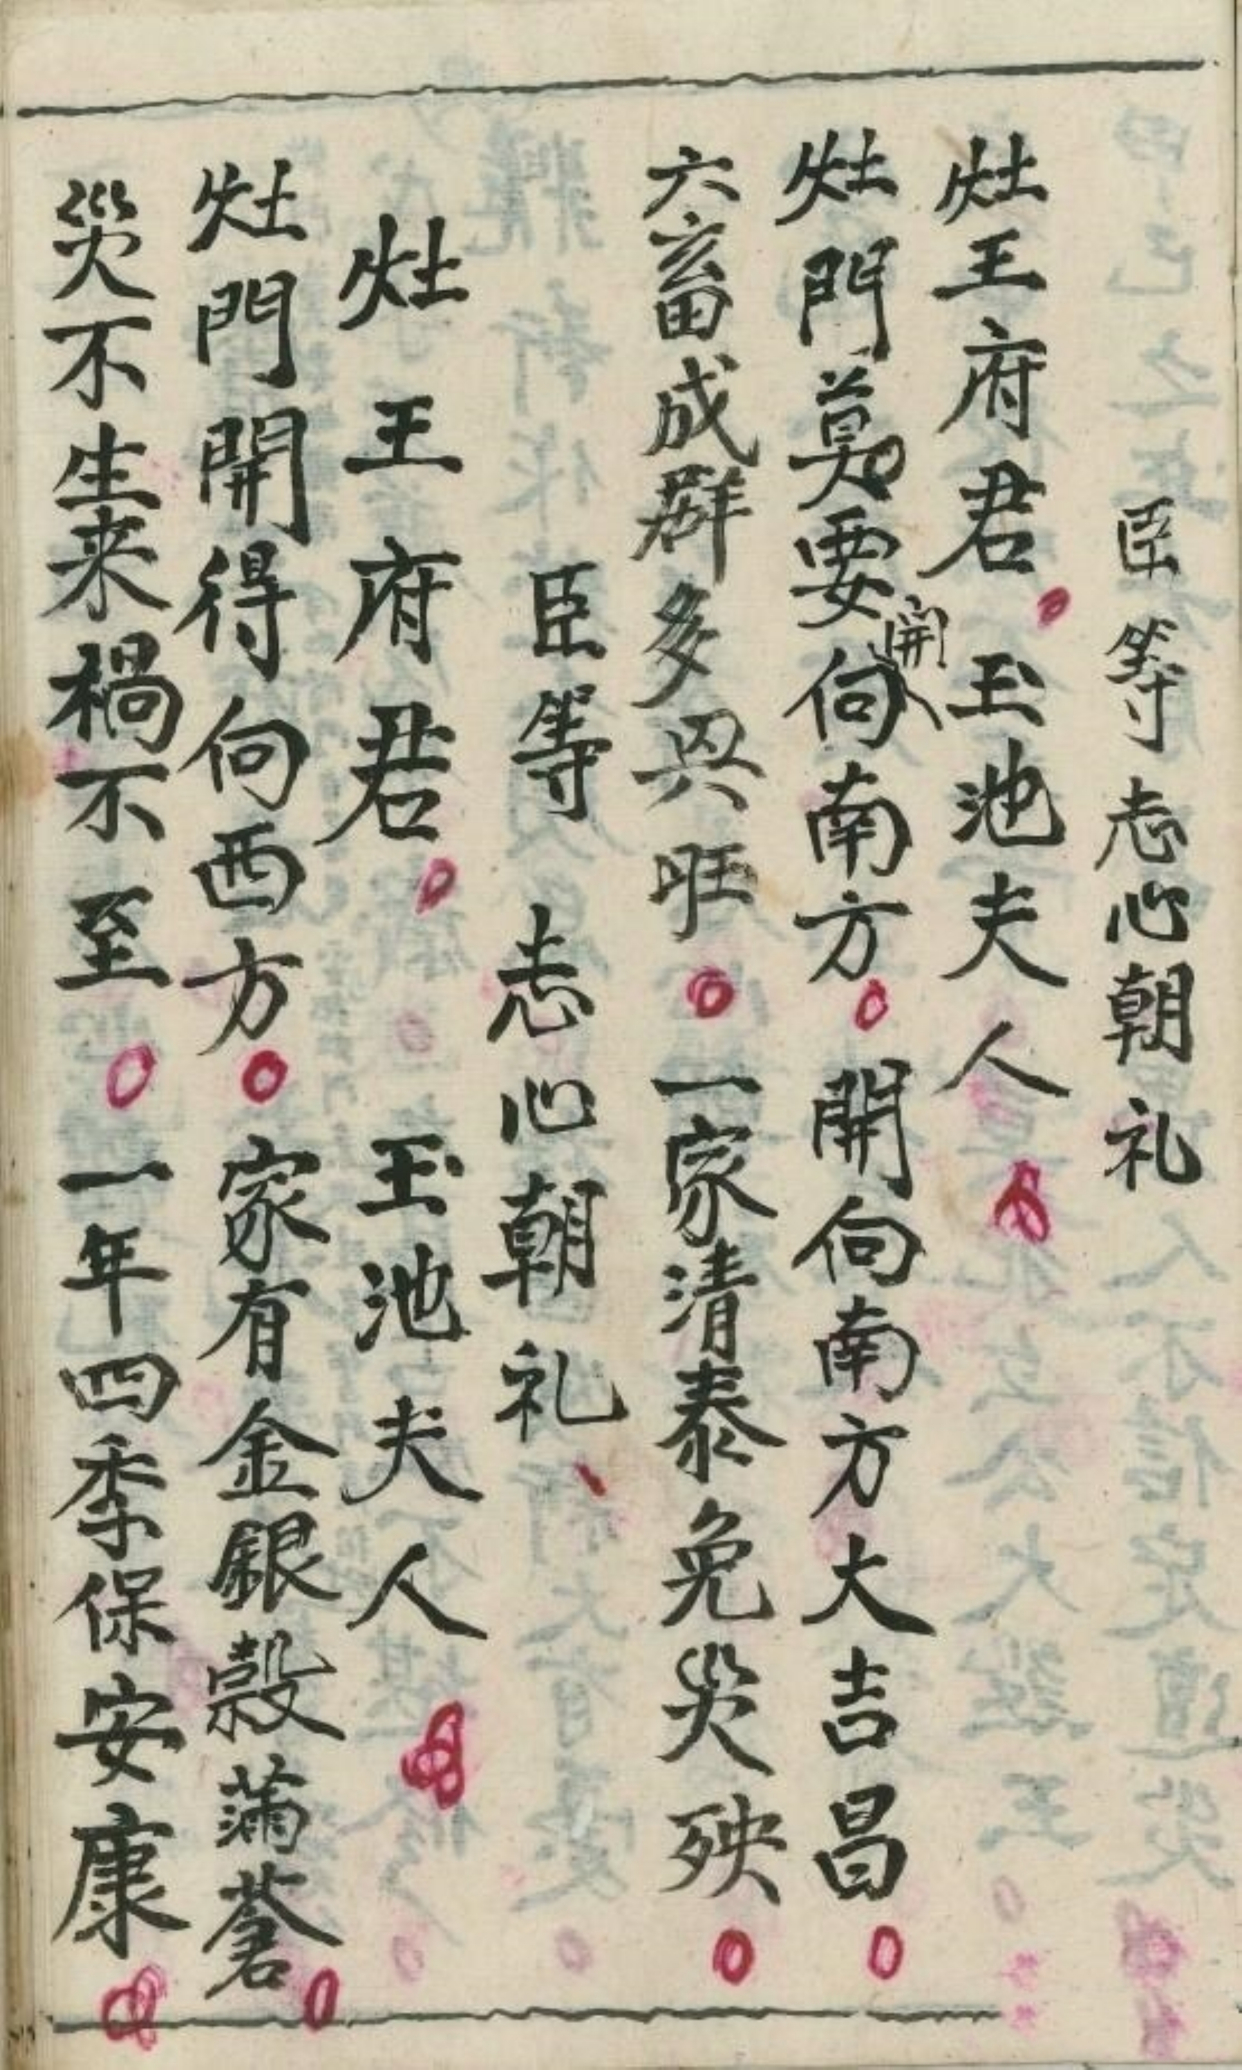 臣等志心朝礼
灶王府君。玉池夫人
灶門莫要開向南方。開向南方大吉昌。
六畜成群多兴旺。一家清泰免災殃。
臣等志心朝礼、
灶王府君。玉池夫人
灶門開得向西方。家有金銀穀滿蒼。
災不生来禍不至。一年四季保安康